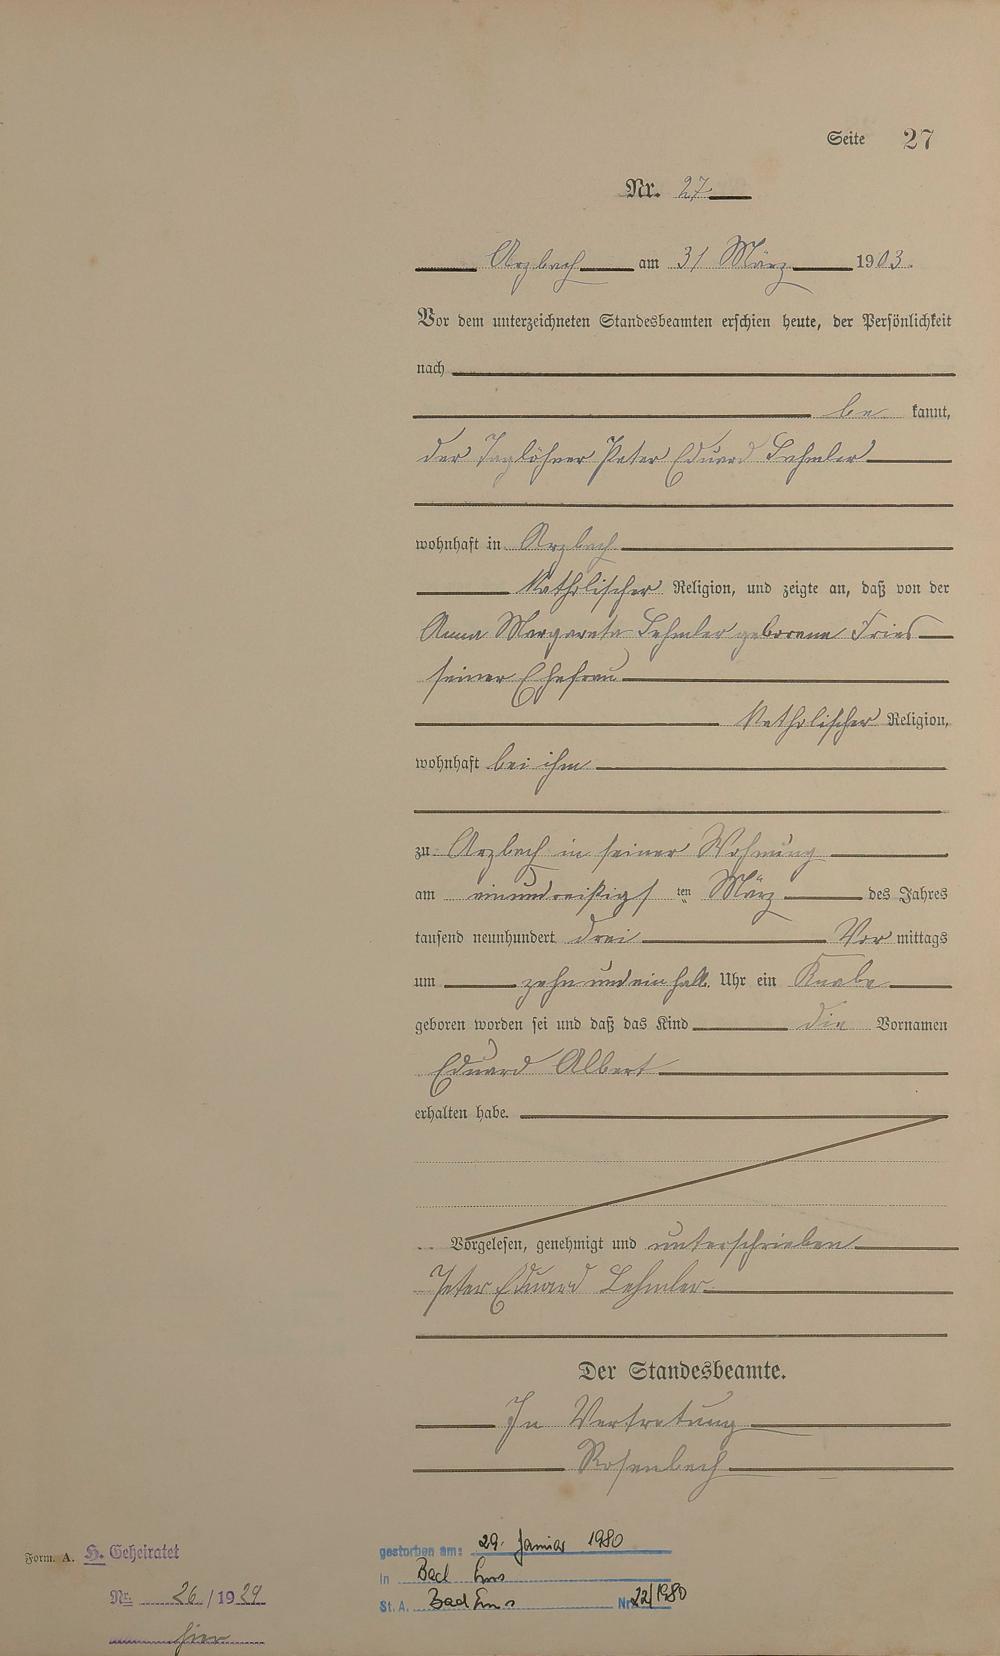 Seite 27
Nr. 27
Arzbach am 31 März 1903.
Vor dem unterzeichneten Standesbeamten erschien heute, der Persönlichkeit
nach
be kannt,
der Taglöhner Peter Eduard Lehmler
wohnhaft in Arzbach
Katholischer Religion, und zeigte an, daß von der
Anna Margareta Lehmler geborene Fries
seiner Ehefrau
Katholischer Religion,
wohnhaft bei ihm
zu Arzbach in seiner Wohnung
am einundreißigsten März des Jahres
tausend neunhundert drei Vor mittags
um zehn und ein halb Uhr ein Knabe
geboren worden sei und daß das Kind die Vornamen
Eduard Albert
erhalten habe.
Vorgelesen, genehmigt und unterschrieben
Peter Eduard Lehmler
Der Standesbeamte.
In Vertretung
Rosenbach
Form. A. H. Geheiratet
Nr. 26/1929
hier
gestorben am: 29. Januar 1980
in Bad Ems
St. A. Bad Ems Nr. 22/1980